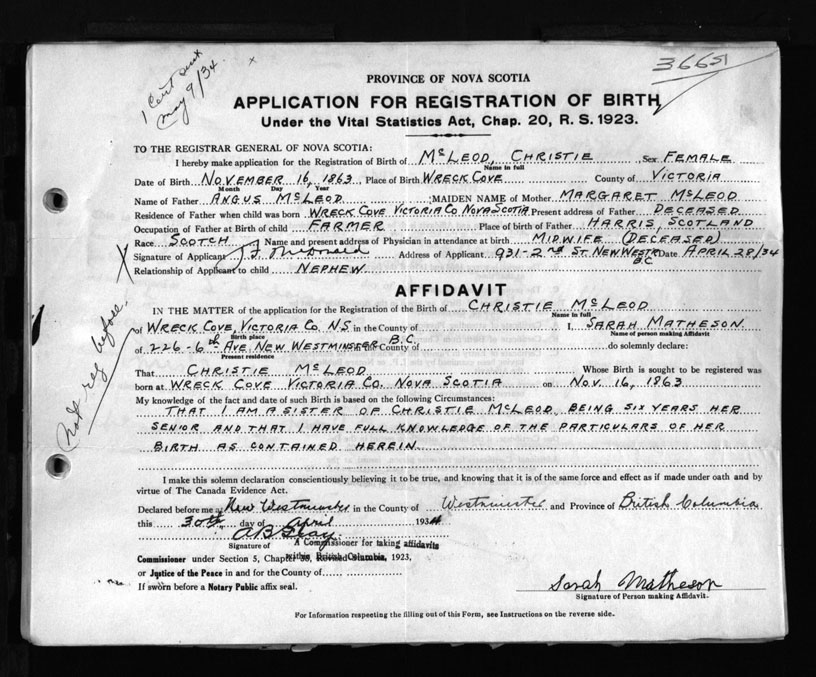 1 Cert sent
May 9/34.
x
36651
PROVINCE OF NOVA SCOTIA
APPLICATION FOR REGISTRATION OF BIRTH
Under the Vital Statistics Act, Chap. 20, R. S. 1923.
TO THE REGISTRAR GENERAL OF NOVA SCOTIA:
I hereby make application for the Registration of Birth of McLEOD, CHRISTIE, Sex FEMALE
Name in full
Date of Birth NOVEMBER 16, 1863, Place of Birth WRECK COVE County of VICTORIA
Month Day Year
Name of Father ANGUS McLEOD; MAIDEN NAME of Mother MARGARET McLEOD
Residence of Father when child was born WRECK COVE VICTORIA CO NOVA SCOTIA Present address of Father DECEASED
Occupation of Father at Birth of child FARMER Place of birth of Father HARRIS, SCOTLAND
Race SCOTCH, Name and present address of Physician in attendance at birth MIDWIFE (DECEASED)
Signature of Applicant Address of Applicant 931-2nd ST. NEW WESTR B.C Date APRIL 28/34
Relationship of Applicant to child NEPHEW
x
Not reg before.
AFFIDAVIT
IN THE MATTER of the application for the Registration of the Birth of CHRISTIE McLEOD
Name in full
of WRECK COVE, VICTORIA CO. N.S. in the County of I, SARAH MATHESON.
Birth place Name of person making Affidavit
of 226-6th AVE NEW WESTMINSTER B.C. in the County of do solemnly declare:
Present residence
That CHRISTIE McLEOD Whose Birth is sought to be registered was
born at WRECK COVE VICTORIA CO. NOVA SCOTIA on NOV. 16, 1863
My knowledge of the fact and date of such Birth is based on the following Circumstances:
THAT I AM A SISTER OF CHRISTIE McLEOD, BEING SIX YEARS HER
SENIOR AND THAT I HAVE FULL KNOWLEDGE OF THE PARTICULARS OF HER
BIRTH AS CONTAINED HEREIN.
I make this solemn declaration conscientiously believing it to be true, and knowing that it is of the same force and effect as if made under oath and by
virtue of The Canada Evidence Act.
Declared before me at New Westminster in the County of Westminster and Province of British Columbia
this 30th day of April 1934
Signature of A Commissioner for taking affidavits
within British Columbia,
Commissioner under Section 5, Chapter 38, Revised Statutes, 1923,
or Justice of the Peace in and for the County of
If sworn before a Notary Public affix seal.
Sarah Matheson
Signature of Person making Affidavit.
For Information respecting the filling out of this Form, see Instructions on the reverse side.